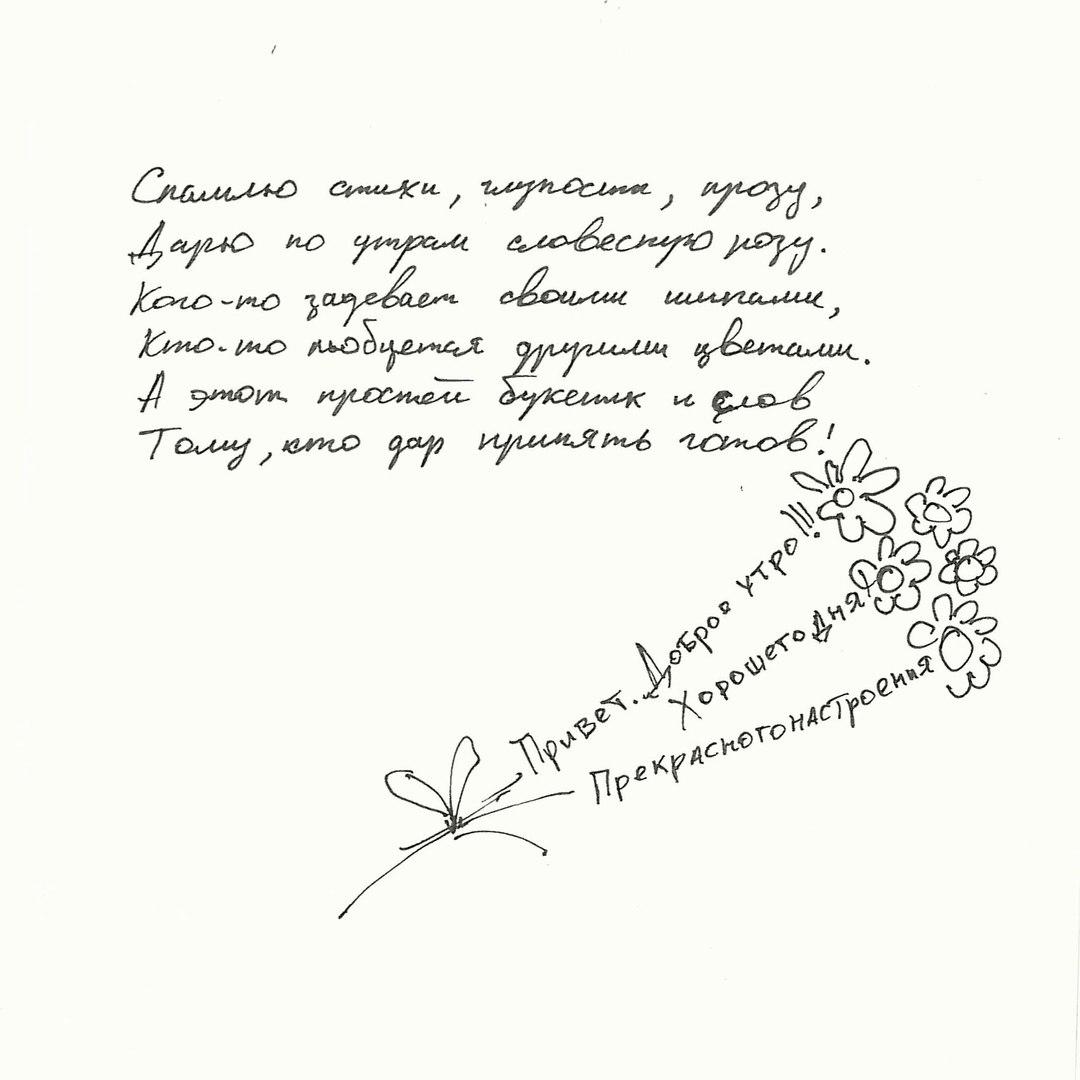 Спамлю стихи, глупости, прозу,
Дарю по утрам словесную розу.
Кого-то задевает своими шипами,
Кто-то любуется другими цветами.
А этот простой букетик и слов
Тому, кто дар принять готов!
Привет... Доброе утро!!!
Хорошего дня!
Прекрасного настроения